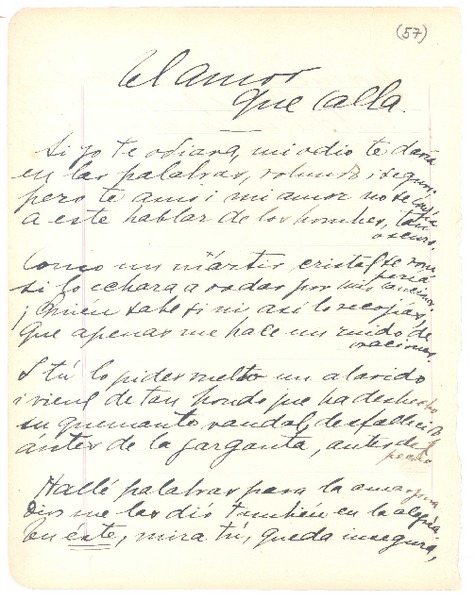 (57)
El amor
que calla.
Si yo te odiara, mi odio te daría
en las palabras, rotundo i seguro;
pero te amo i mi amor no se confía
a este hablar de los hombres, tan
oscuro.
Como un mártir cristal se rom
pería
si lo echara a rodar por mis
¡Quien sabe si ni así lo recojías,
que apenas me hace un ruido de
oraciones
I tú lo pides vuelto un alarido
i viene de tan hondo que ha deshecho
su quemante raudal, desfallecido
ántes de la garganta, antes del
pecho
Hallé palabras para la amargura
Dios me las dió tambien en la alegría.
En éste, mira tú, queda insegura,